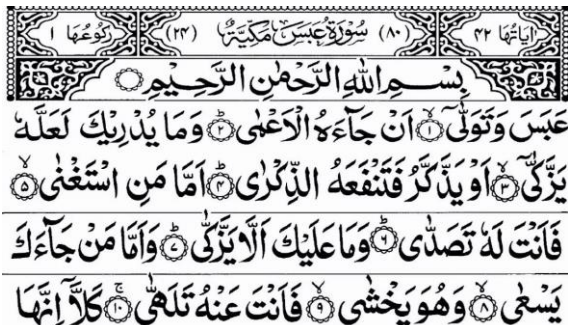 اٰيَاتُهَا ۴۲ (۸۰) سُوْرَةُ عَبَسَ مَكِّيَّةٌ (۲۴) رُكُوْعُهَا ۱
بِسْمِ اللّٰهِ الرَّحْمٰنِ الرَّحِيْمِ ۝
عَبَسَ وَتَوَلّٰىٓ ۙ‏﴿۱﴾ اَنْ جَآءَهُ الْاَعْمٰىؕ‏﴿۲﴾ وَمَا يُدْرِيْكَ لَعَلَّهٗ
يَزَّكّٰىٓ ۙ‏﴿۳﴾ اَوْ يَذَّكَّرُ فَتَنْفَعَهُ الذِّكْرٰىؕ‏﴿۴﴾ اَمَّا مَنِ اسْتَغْنٰىۙ‏﴿۵﴾
فَاَنْتَ لَهٗ تَصَدّٰىؕ‏﴿۶﴾ وَمَا عَلَيْكَ اَلَّا يَزَّكّٰىؕ‏﴿۷﴾ وَاَمَّا مَنْ جَآءَكَ
يَسْعٰىۙ‏﴿۸﴾ وَهُوَ يَخْشٰىۙ‏﴿۹﴾ فَاَنْتَ عَنْهُ تَلَهّٰىۚ‏﴿۱۰﴾ كَلَّاۤ اِنَّهَا